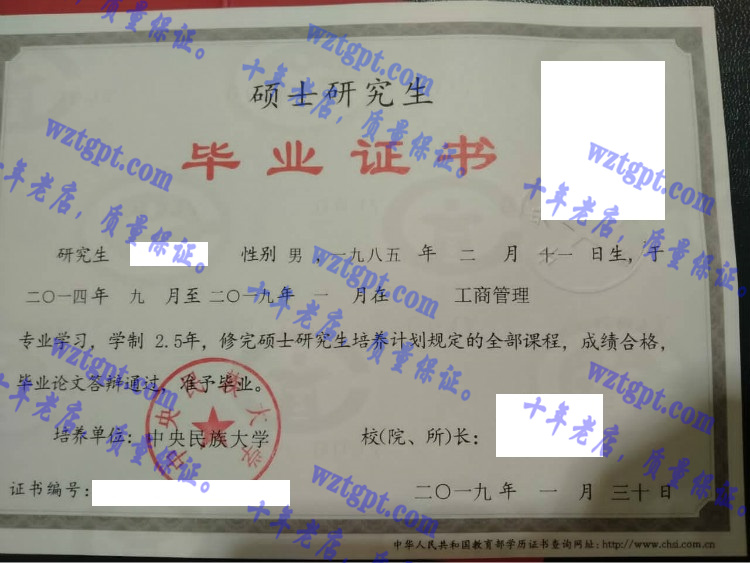 硕士研究生
毕业证书
研究生 性别 男，一九八五 年 二 月 十一 日生，于
二〇一四年 九 月至二〇一九年 一 月在 工商管理
专业学习，学制 2.5年，修完硕士研究生培养计划规定的全部课程，成绩合格，
毕业论文答辩通过，准予毕业。
培养单位：中央民族大学 校(院、所)长：
中央民族大学
证书编号： 二〇一九 年 一 月 三十 日
中华人民共和国教育部学历证书查询网址：http://www.chsi.com.cn
十年老店，质量保证。
wztgpt.com
十年老店，质量保证。
wztgpt.com
十年老店，质量保证。
wztgpt.com
十年老店，质量保证。
wztgpt.com
十年老店，质量保证。
wztgpt.com
十年老店，质量保证。
wztgpt.com
十年老店，质量保证。
wztgpt.com
十年老店，质量保证。
wztgpt.com